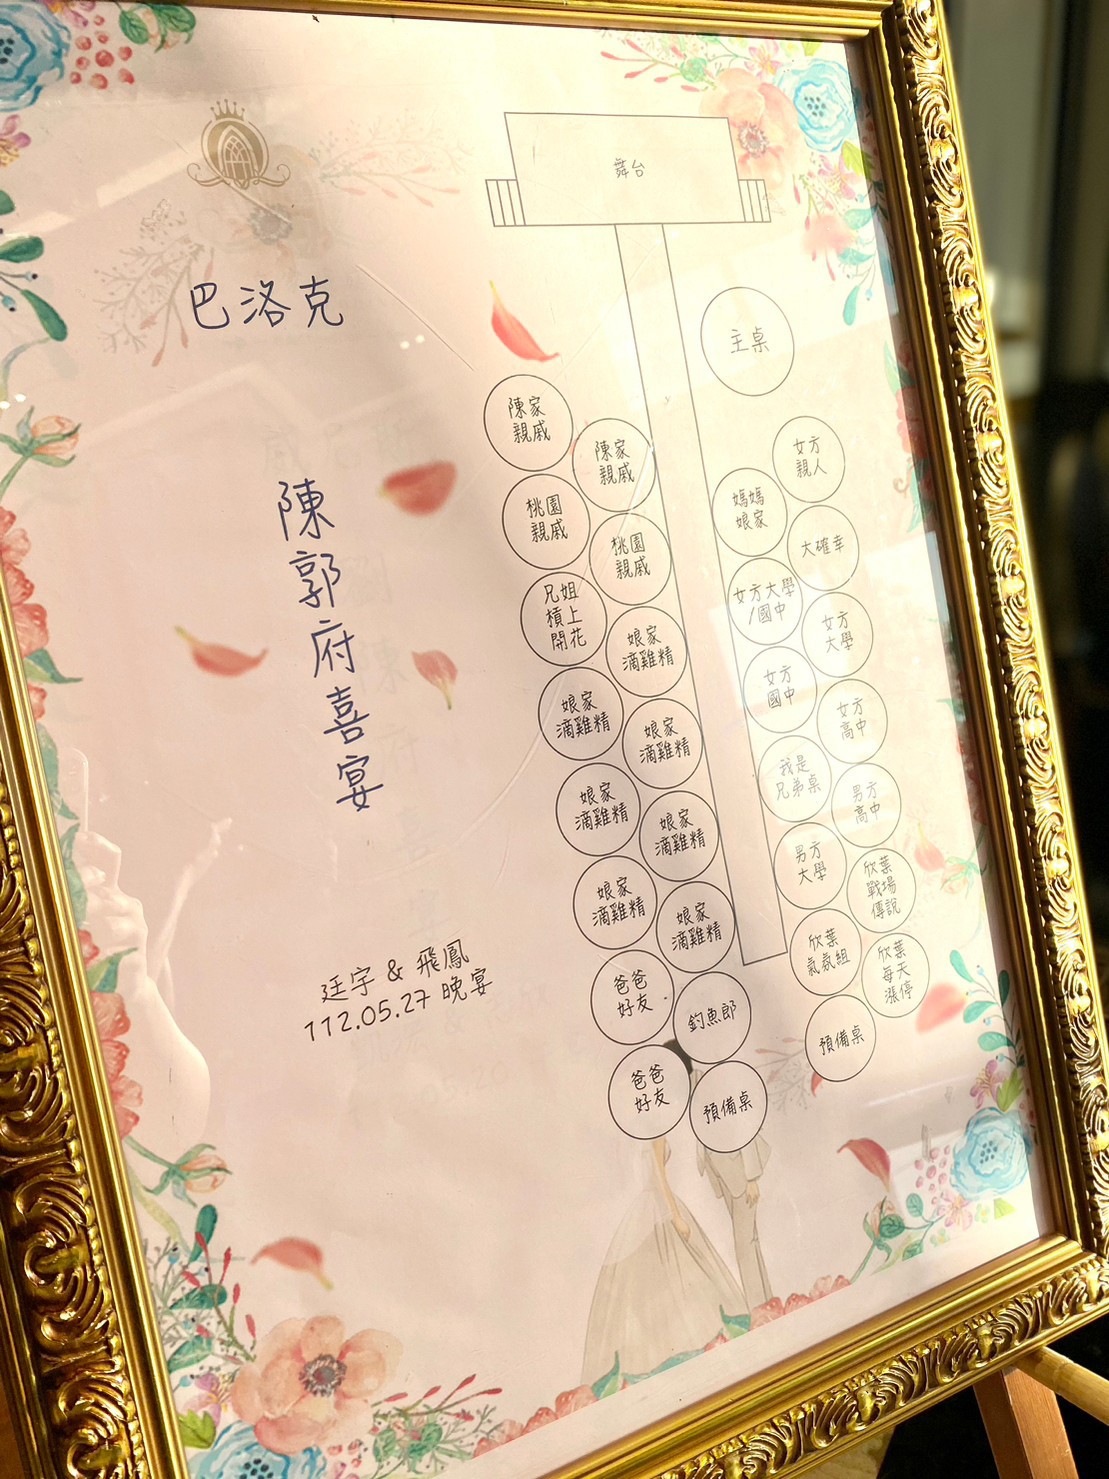 舞台
巴洛克
陳郭府喜宴
廷宇 & 飛鳳
112.05.27 晚宴
主桌
陳家
親戚
陳家
親戚
桃園
親戚
桃園
親戚
兄姐
槓上
開花
娘家
滴雞精
娘家
滴雞精
娘家
滴雞精
娘家
滴雞精
娘家
滴雞精
娘家
滴雞精
娘家
滴雞精
爸爸
好友
釣魚郎
爸爸
好友
預備桌
女方
親人
媽媽
娘家
大確幸
女方大學
/國中
女方
大學
女方
國中
女方
高中
我是
兄弟桌
男方
高中
男方
大學
欣葉
戰場
傳說
欣葉
氣氛組
欣葉
每天
漲停
預備桌